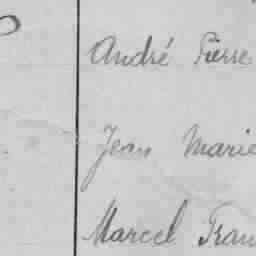 André Pierre
Jean Marie
Marcel Fran